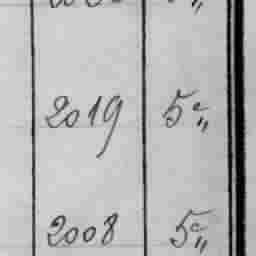 2019 5 c„
2008 5 c„